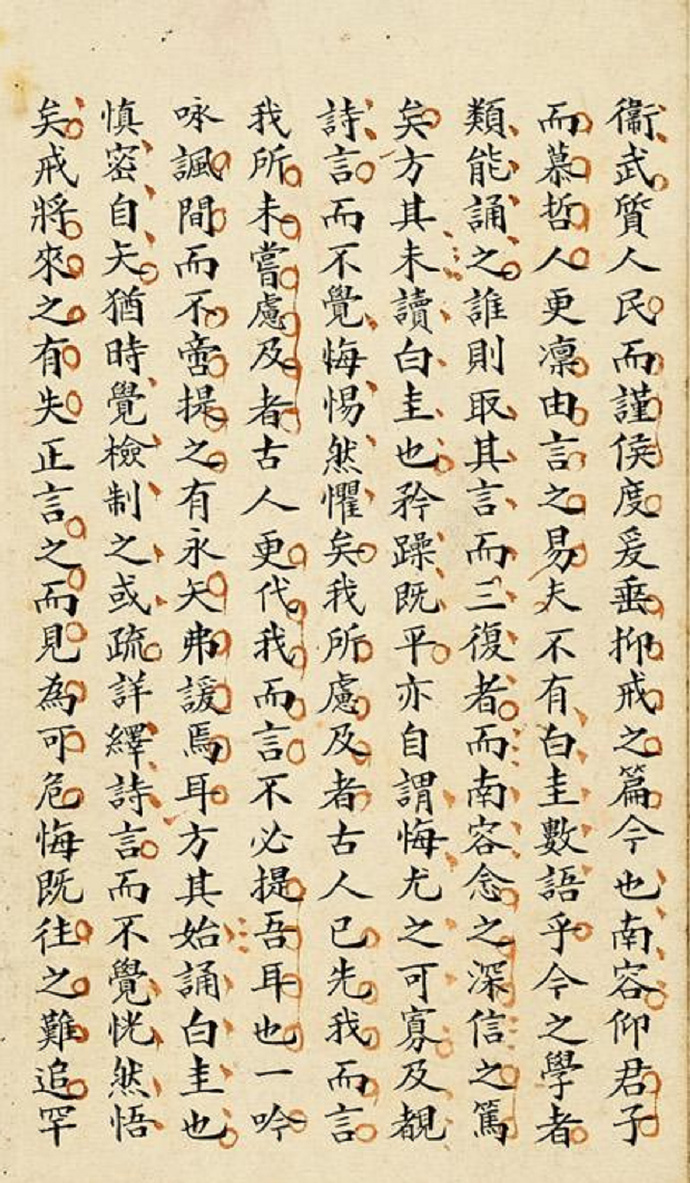 衞武質人民而謹侯度爰垂抑戒之篇今也南容仰君子
而慕哲人更凛由言之易夫不有白圭數語乎今之學者
類能誦之誰則取其言而三復者而南容念之深信之篤
矣方其未讀白圭也矜躁既平亦自謂悔尤之可寡及覩
詩言而不覺悔惕然懼矣我所慮及者古人已先我而言
我所未嘗慮及者古人更代我而言不必提吾耳也一吟
咏諷間而不啻提之有永矢弗諼焉耳方其始誦白圭也
慎密自矢猶時覺檢制之或疏詳繹詩言而不覺恍然悟
矣戒將來之有失正言之而見為可危悔既往之難追罕